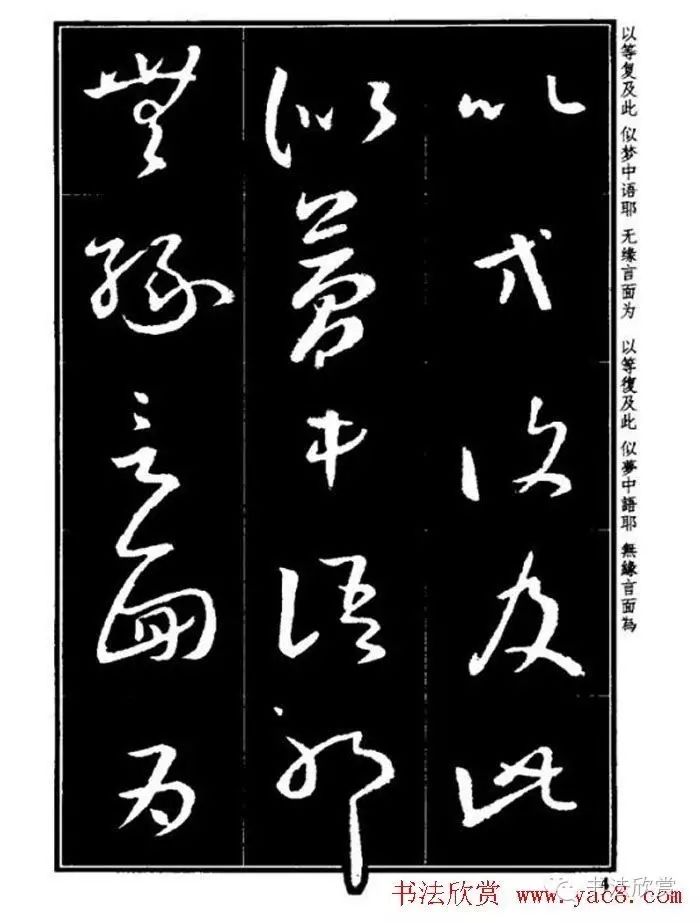 以等復及此
似夢中語耶
無緣言面為
以等复及此 似梦中语耶 无缘言面为
以等復及此 似夢中語耶 無緣言面為
4
书法欣赏
书法欣赏 www.yac8.com